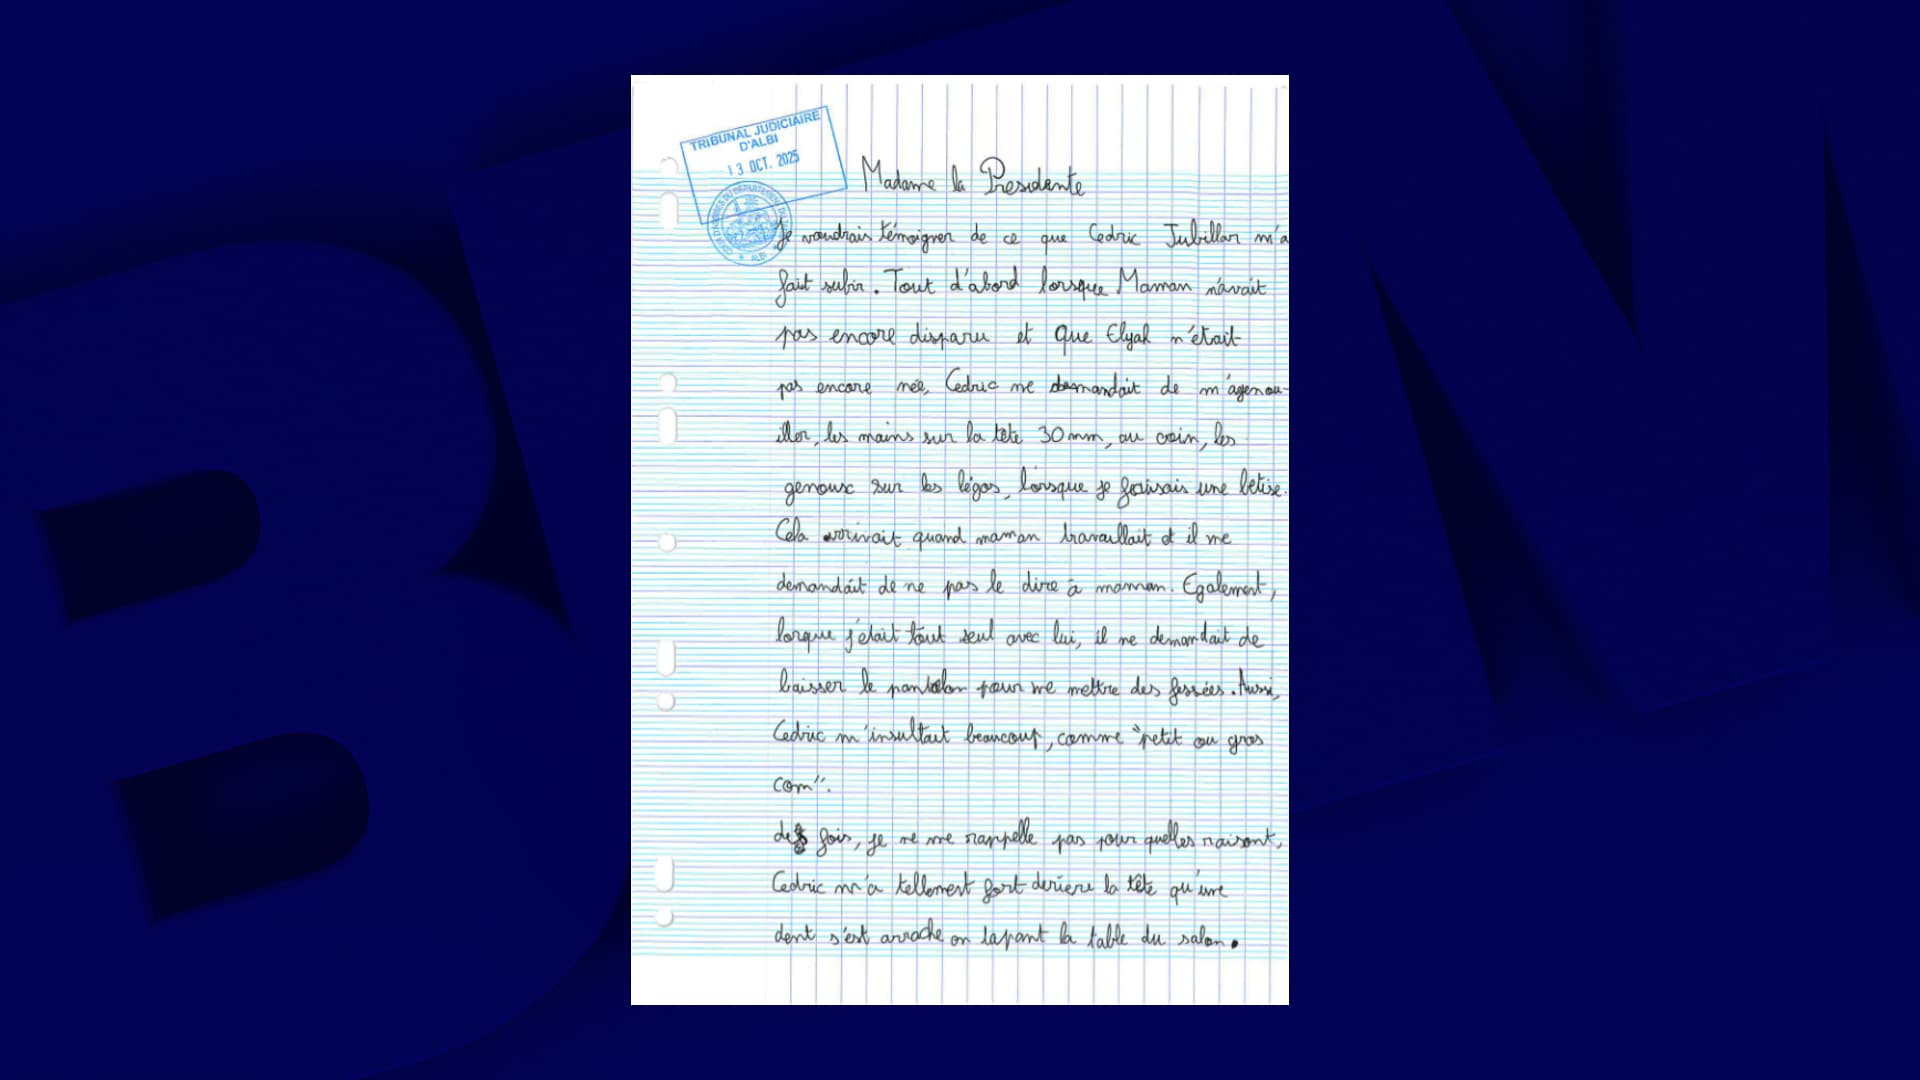 TRIBUNAL JUDICIAIRE
D'ALBI
13 OCT. 2025
ALBI
Madame la Presidente
Je voudrais témoigner de ce que Cedric Jubillar m'a
fait subir. Tout d'abord lorsque Maman n'avait
pas encore disparu et que Elyah n'était
pas encore née, Cedric me demandait de m'agenou-
iller, les mains sur la tete 30mm, au coin, les
genoux sur les légos, lorsque je faisais une betise.
Cela arrivait quand maman travaillait et il me
demandait de ne pas le dire à maman. Egalement,
lorque j'était tout seul avec lui, il me demandait de
baisser le pantalon pour me mettre des fessées. Aussi,
Cedric m'insultait beaucoup, comme "petit ou gros
com".
des fois, je ne me rappelle pas pour quelles raisont,
Cedric m'a tellement fort deriere la tête qu'une
dent s'est arrache en tapant la table du salon.